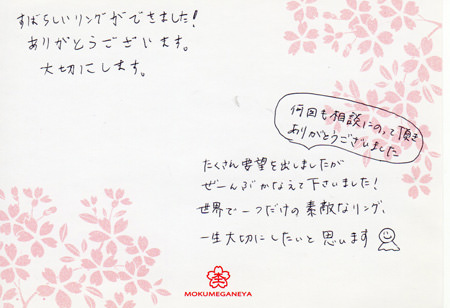 すばらしいリングができました!
ありがとうございます。
大切にします。
何回も相談にのって頂き
ありがとうございました
たくさん要望を出しましたが
ぜーんぶかなえて下さいました!
世界で一つだけの素敵なリング、
一生大切にしたいと思います
MOKUMEGANEYA